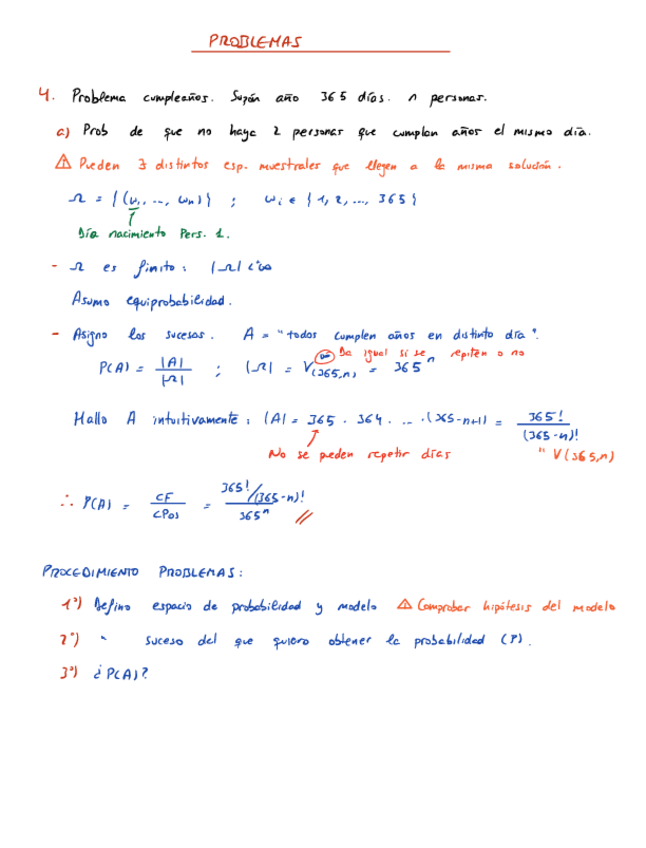 PROBLEMAS
4. Problema cumpleaños. Supón año 365 días. n personas.
a) Prob de que no haya 2 personas que cumplan años el mismo día.
⚠ Pueden 3 distintos esp. muestrales que llegen a la misma solución.
Ω = {(ω₁, ..., ωₙ)} ; ωᵢ ∈ {1, 2, ..., 365}
Día nacimiento Pers. 1.
- Ω es finito: |Ω| < ∞
Asumo equiprobabilidad.
- Asigno los sucesos. A = "todos cumplen años en distinto día".
Da igual si se repiten o no
P(A) = |A| / |Ω| ; |Ω| = V(365,n) = 365ⁿ
Hallo A intuitivamente: |A| = 365 · 364 · ... · (365-n+1) = 365! / (365-n)!
No se pueden repetir días " V(365,n)
∴ P(A) = CF / CPos = 365!/(365-n)! / 365ⁿ //
PROCEDIMIENTO PROBLEMAS:
1º) Defino espacio de probabilidad y modelo ⚠ Comprobar hipótesis del modelo
2º) " suceso del que quiero obtener la probabilidad (P).
3º) ¿P(A)?